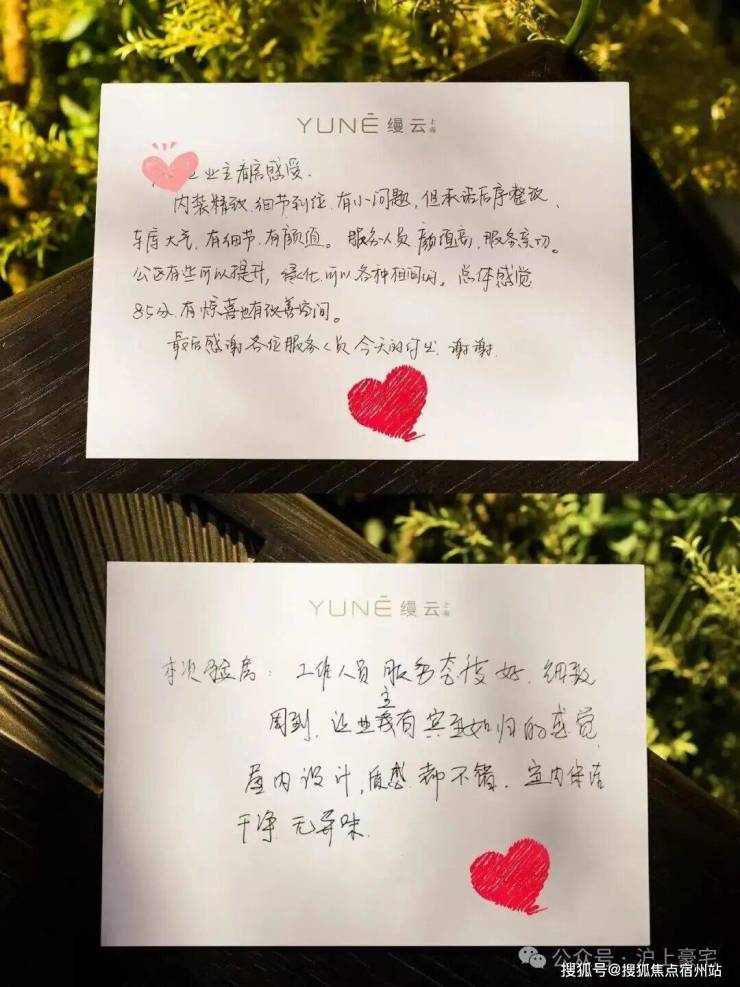 YUNĒ 缦云 上海
业主看房感受.
内装精致.细节到位.有小问题,但承诺后序整改、
车库大气.有细节.有颜值。服务人员颜值高,服务亲切。
公区有些可以提升,绿化可以各种相间的。总体感觉
85分.有惊喜也有改善空间。
最后感谢各位服务人员今天的付出.谢谢.
YUNĒ 缦云 上海
本次验房:工作人员服务态度好.细致
周到.让业主有宾至如归的感觉
屋内设计,质感都不错.室内保洁
干净无异味.
公众号·沪上豪宅
搜狐号@搜狐焦点宿州站